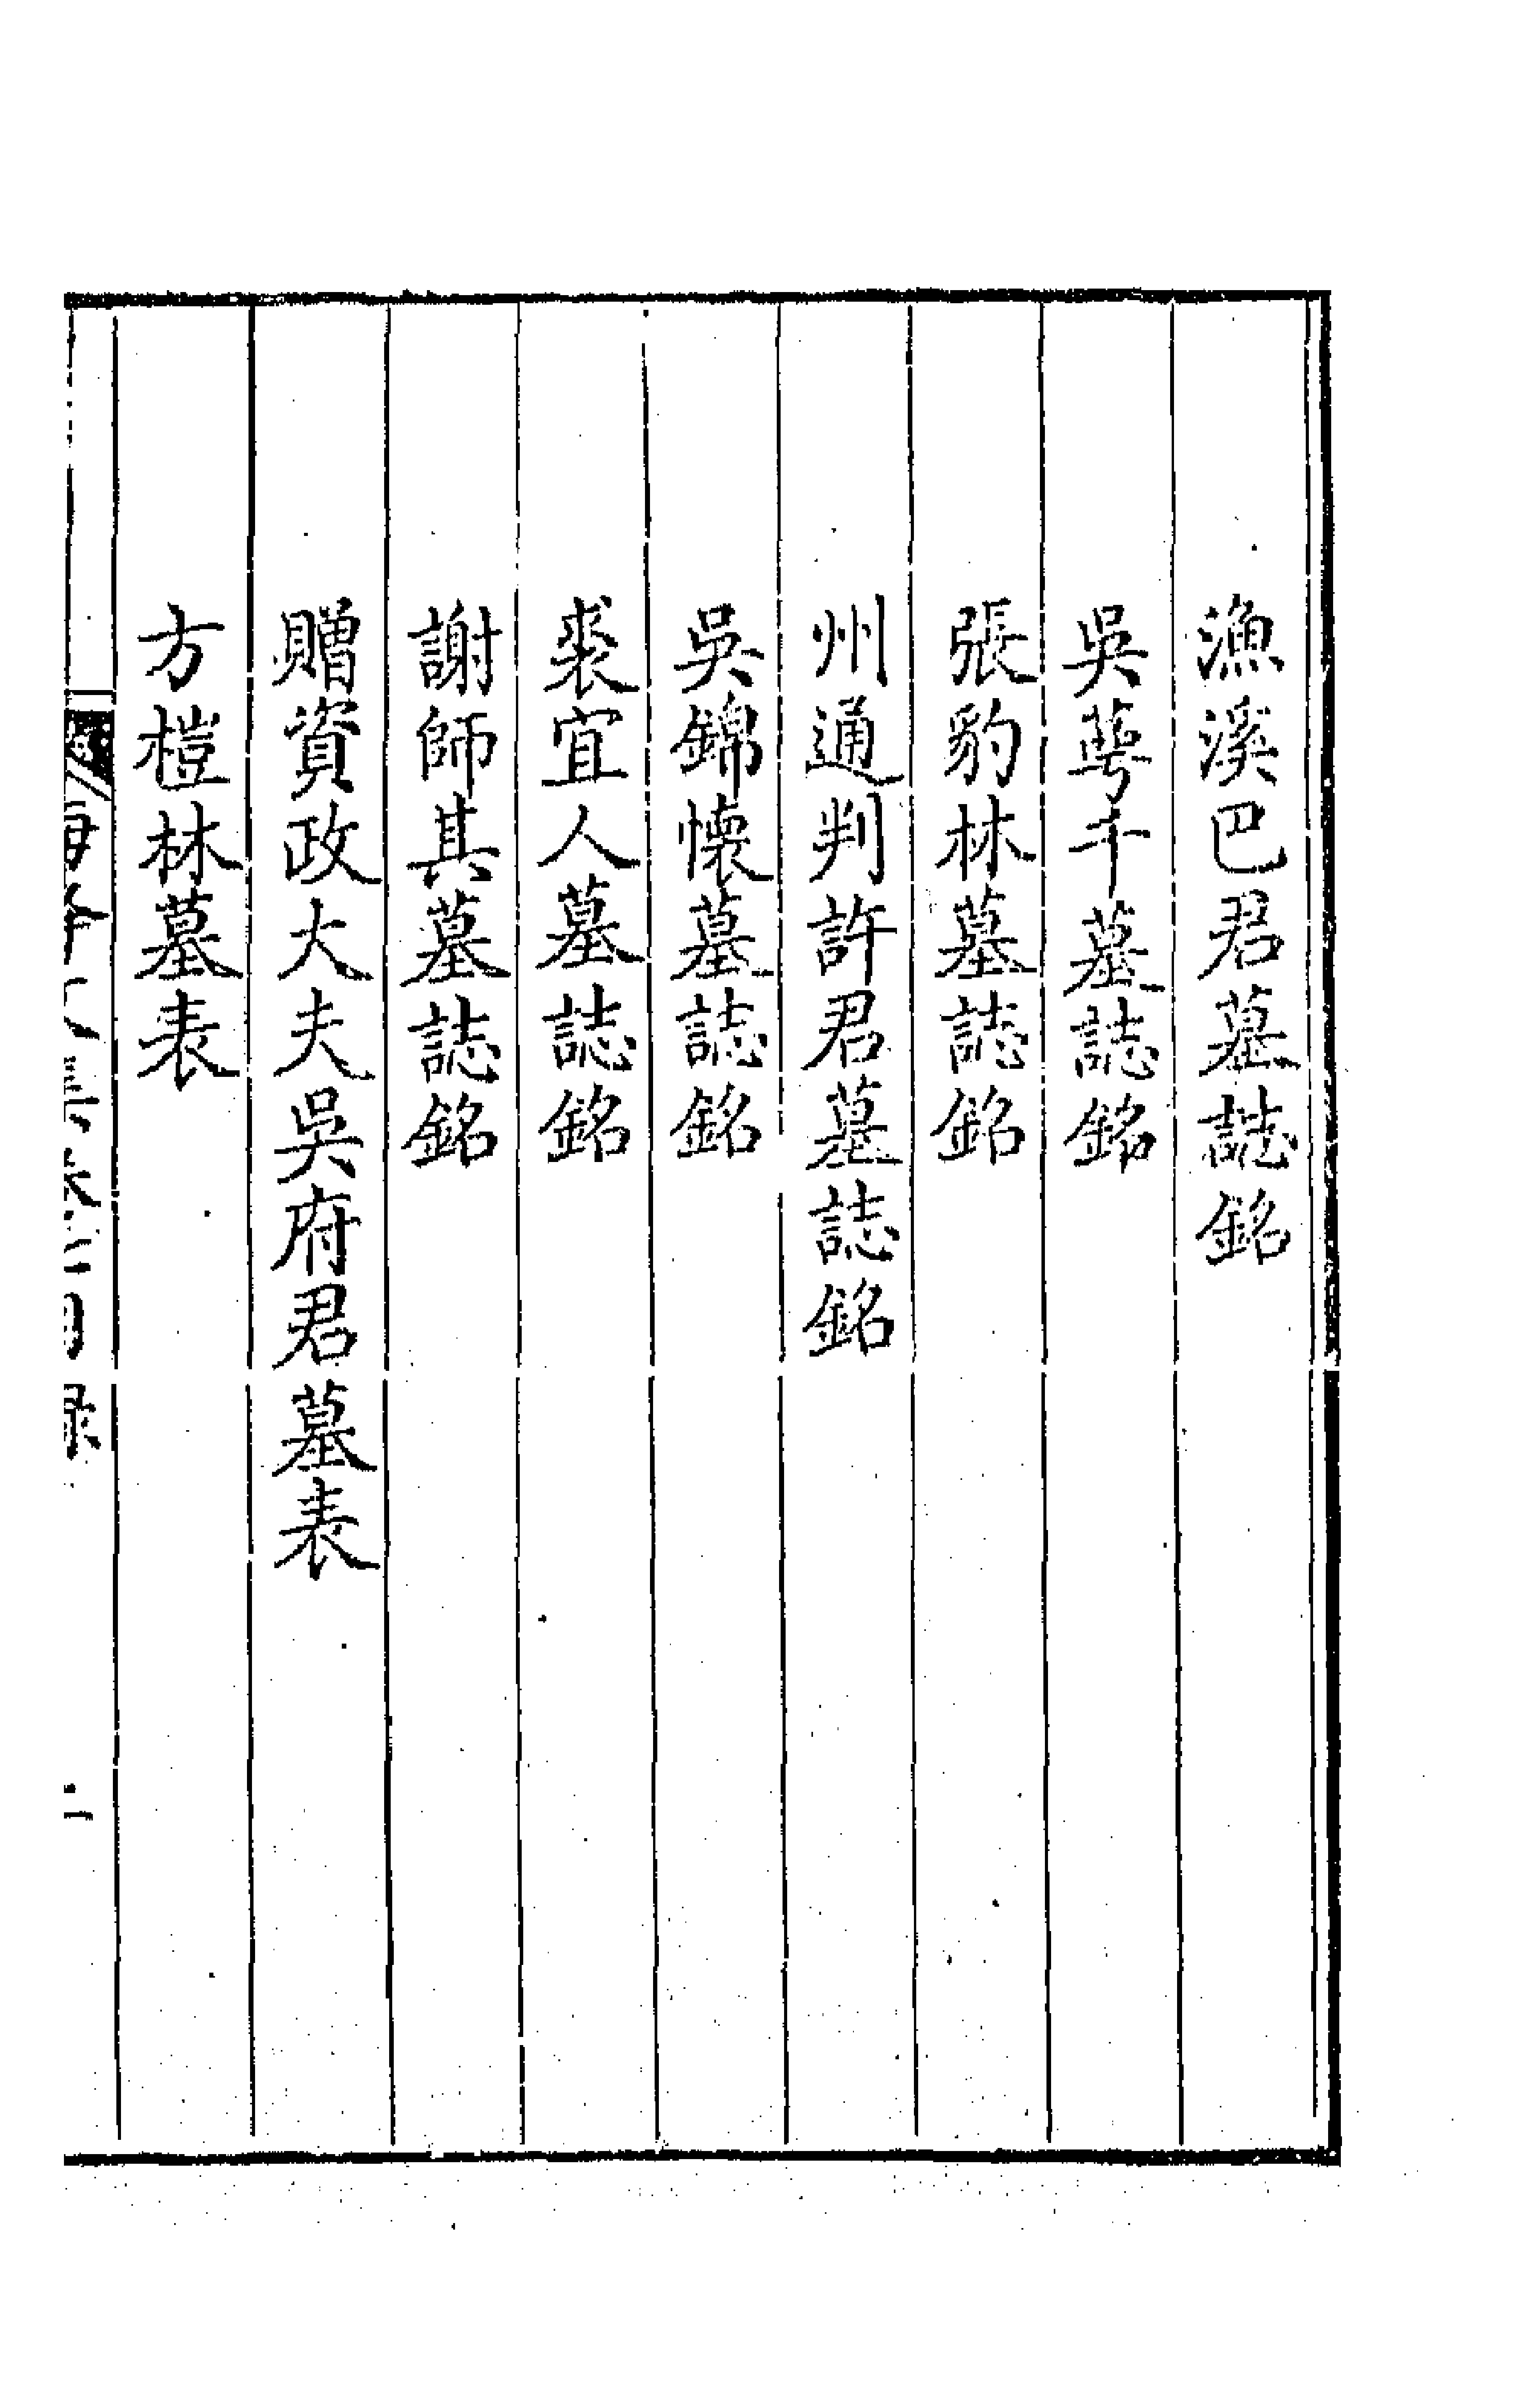 漁溪巴君墓誌銘
吳蕚千墓誌銘
張豹林墓誌銘
州通判許君墓誌銘
吳錦懷墓誌銘
裘宜人墓誌銘
謝師其墓誌銘
贈資政大夫吳府君墓表
方榿林墓表